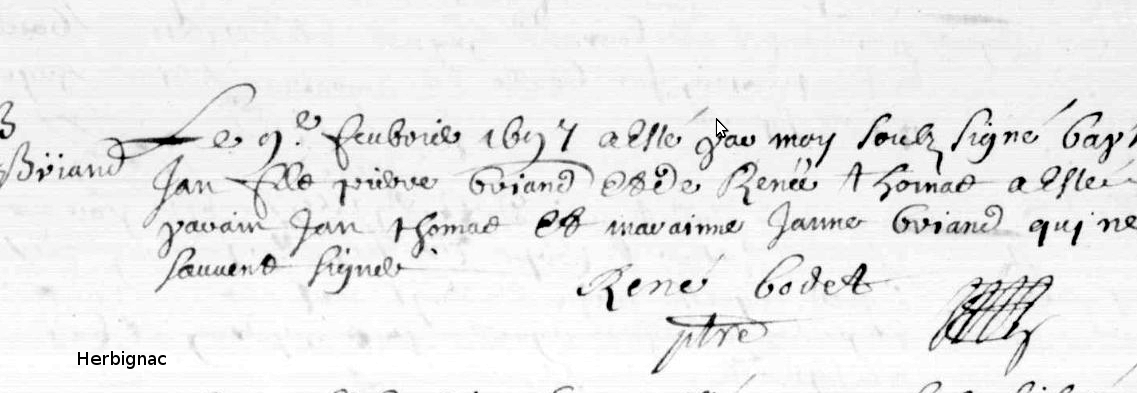 B
Briand
Le 9.e feuborie 1697 a esté par moy soulz signé bap
Jan fils pierre briand et de Renée thomas a esté
parain Jan thomas et maraine Janne briand qui ne
sauvent signer
René bodet
ptre
Herbignac